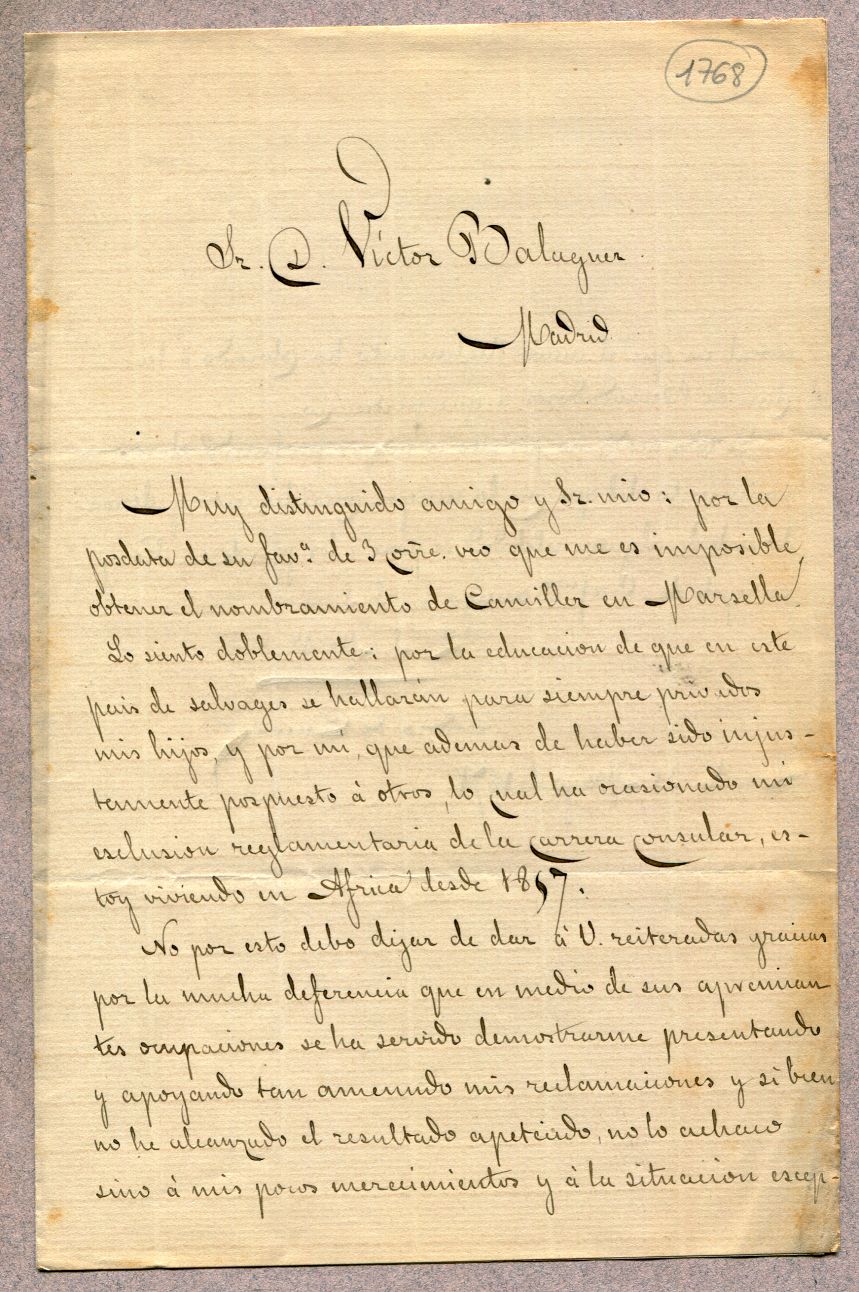 1768
Sr. D. Víctor Balaguer
Madrid
Muy distinguido amigo y Sr. mio: por la
posdata de su fav.ª de 3 corre. veo que me es imposible
obtener el nombramiento de Canciller en Marsella.
Lo siento doblemente: por la educacion de que en este
pais de salvages se hallarán para siempre privados
mis hijos, y por mi, que ademas de haber sido injus-
tamente pospuesto á otros, lo cual ha ocasionado mi
esclusion reglamentaria de la Carrera Consular, es-
toy viviendo en Africa desde 1857.
No por esto debo dejar de dar á V. reiteradas gracias
por la mucha deferencia que en medio de sus apremian
tes ocupaciones se ha servido demostrarme presentando
y apoyando tan amenudo mis reclamaciones y si bien
no he alcanzado el resultado apetecido, no lo achaco
sino á mis pocos merecimientos y á la situacion escep-